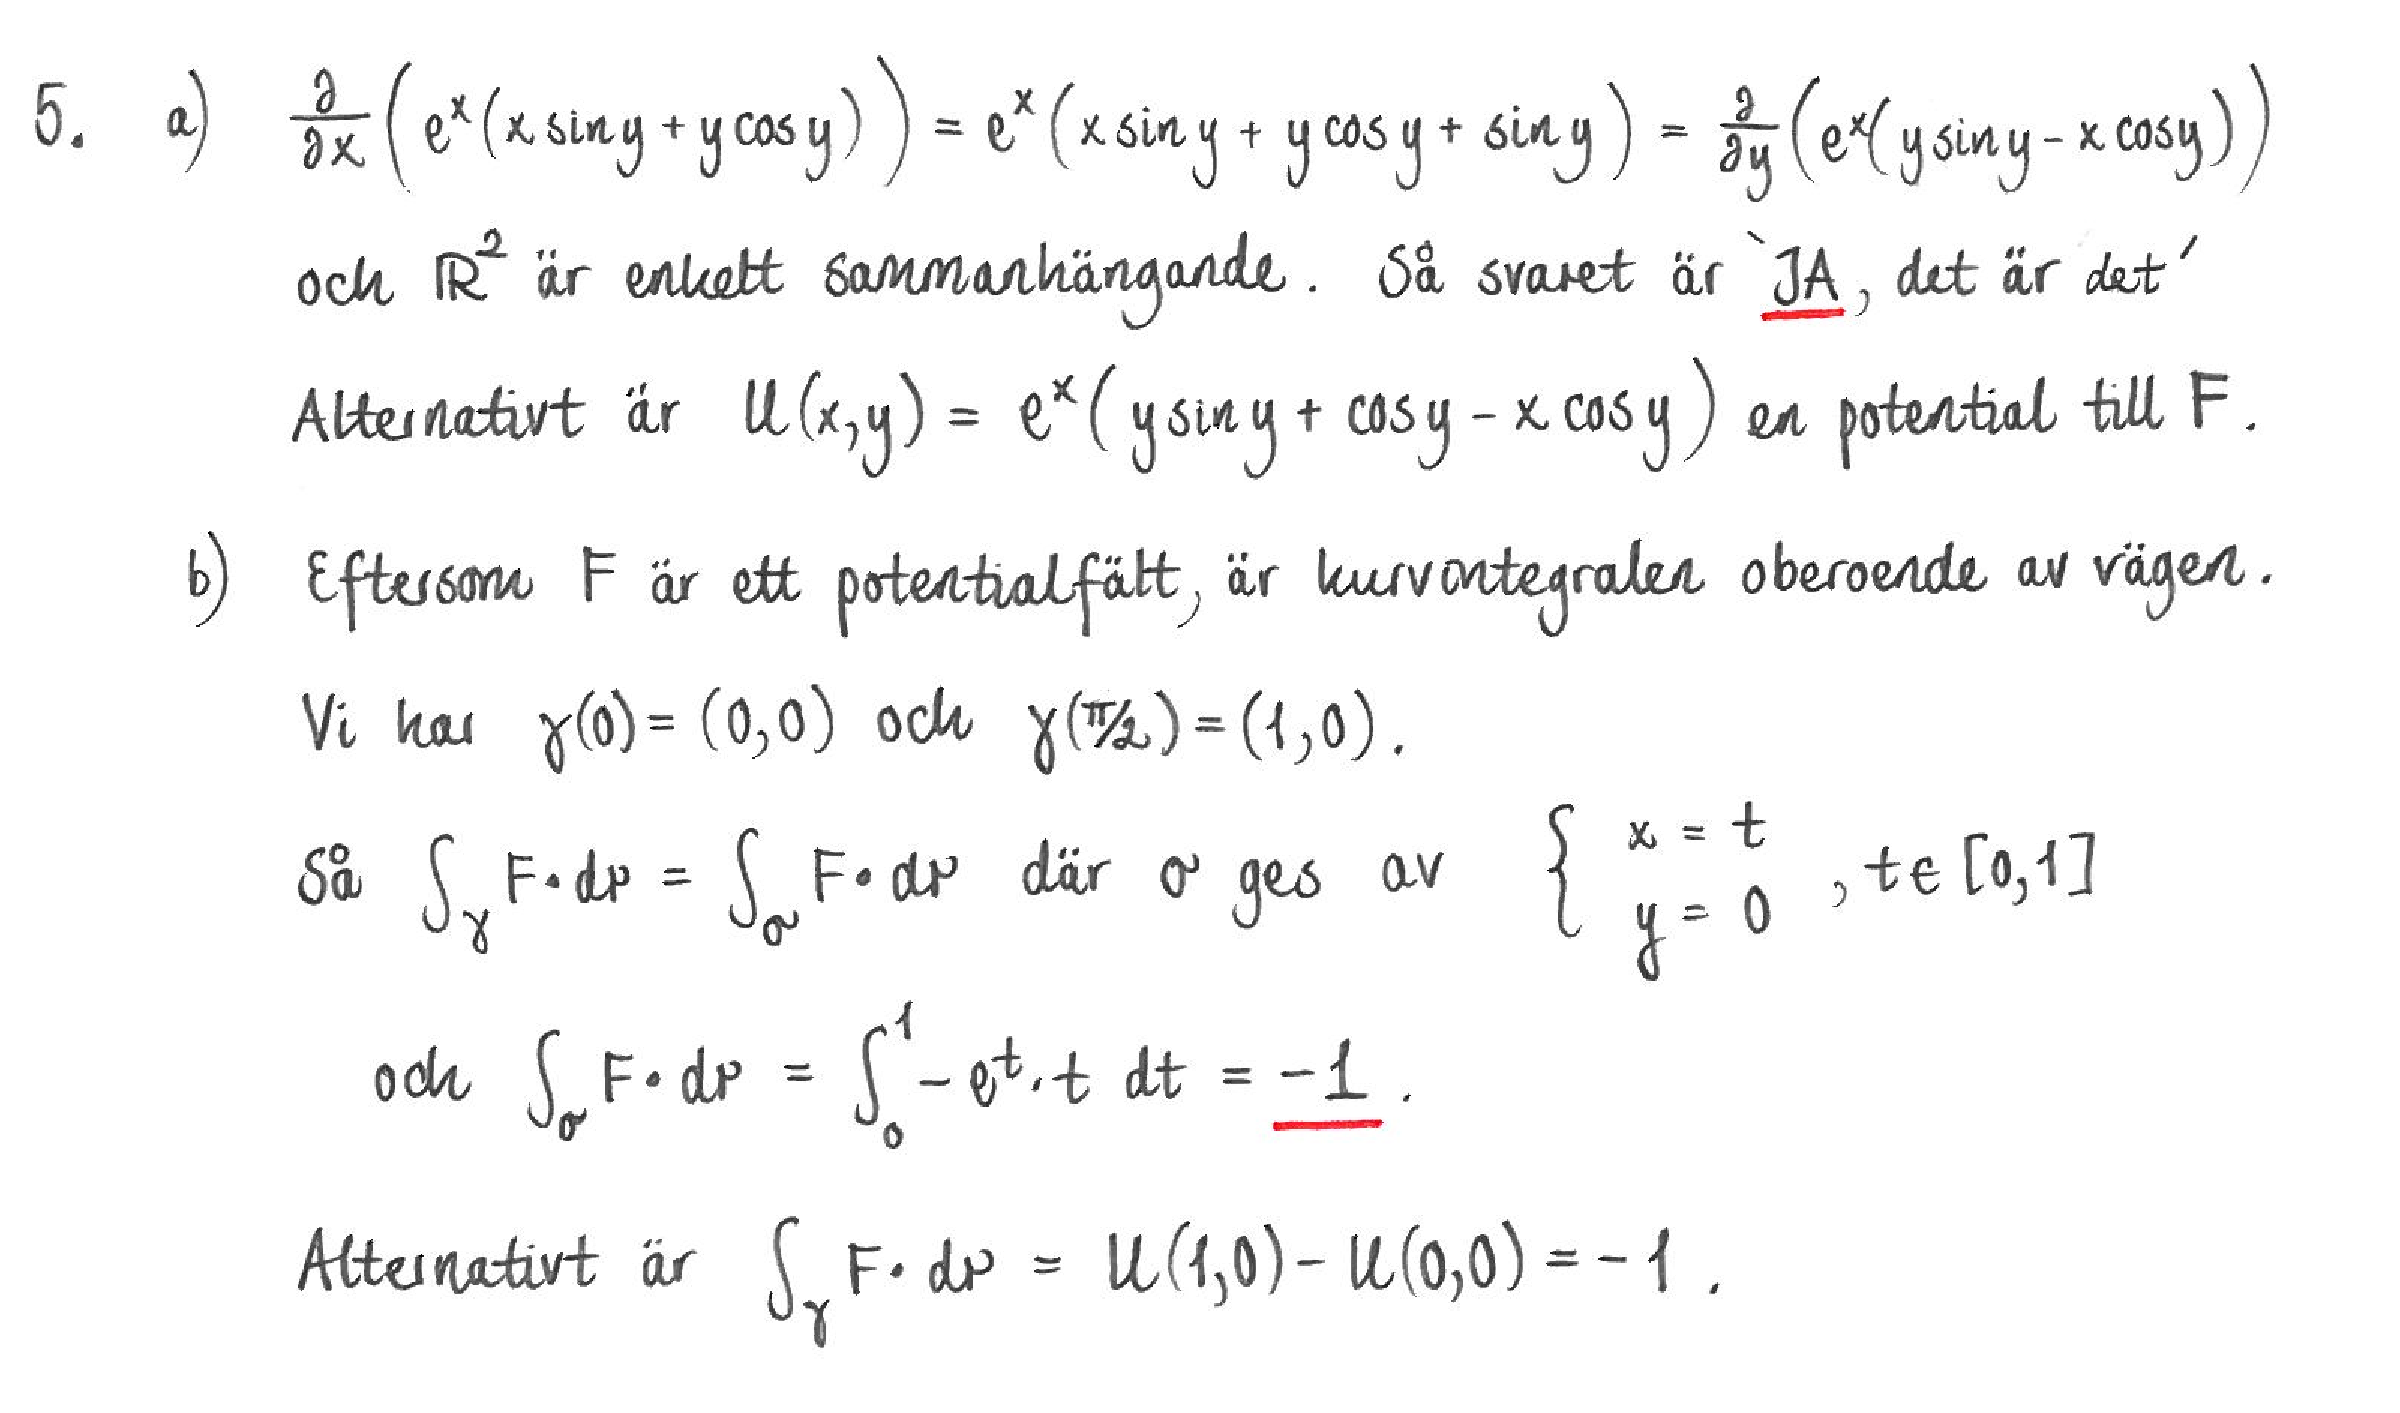 5. a) ∂/∂x (e^x (x sin y + y cos y)) = e^x (x sin y + y cos y + sin y) = ∂/∂y (e^x (y sin y - x cos y))
och ℝ² är enkelt sammanhängande. Så svaret är `JA, det är det´
Alternativt är U(x,y) = e^x (y sin y + cos y - x cos y) en potential till F.
b) Eftersom F är ett potentialfält, är kurvontegralen oberoende av vägen.
Vi har γ(0) = (0,0) och γ(π/2) = (1,0).
Så ∫_γ F • dr = ∫_σ F • dr där σ ges av { x = t, y = 0 , t ∈ [0,1]
och ∫_σ F • dr = ∫_0^1 - e^t · t dt = -1.
Alternativt är ∫_γ F • dr = U(1,0) - U(0,0) = -1.